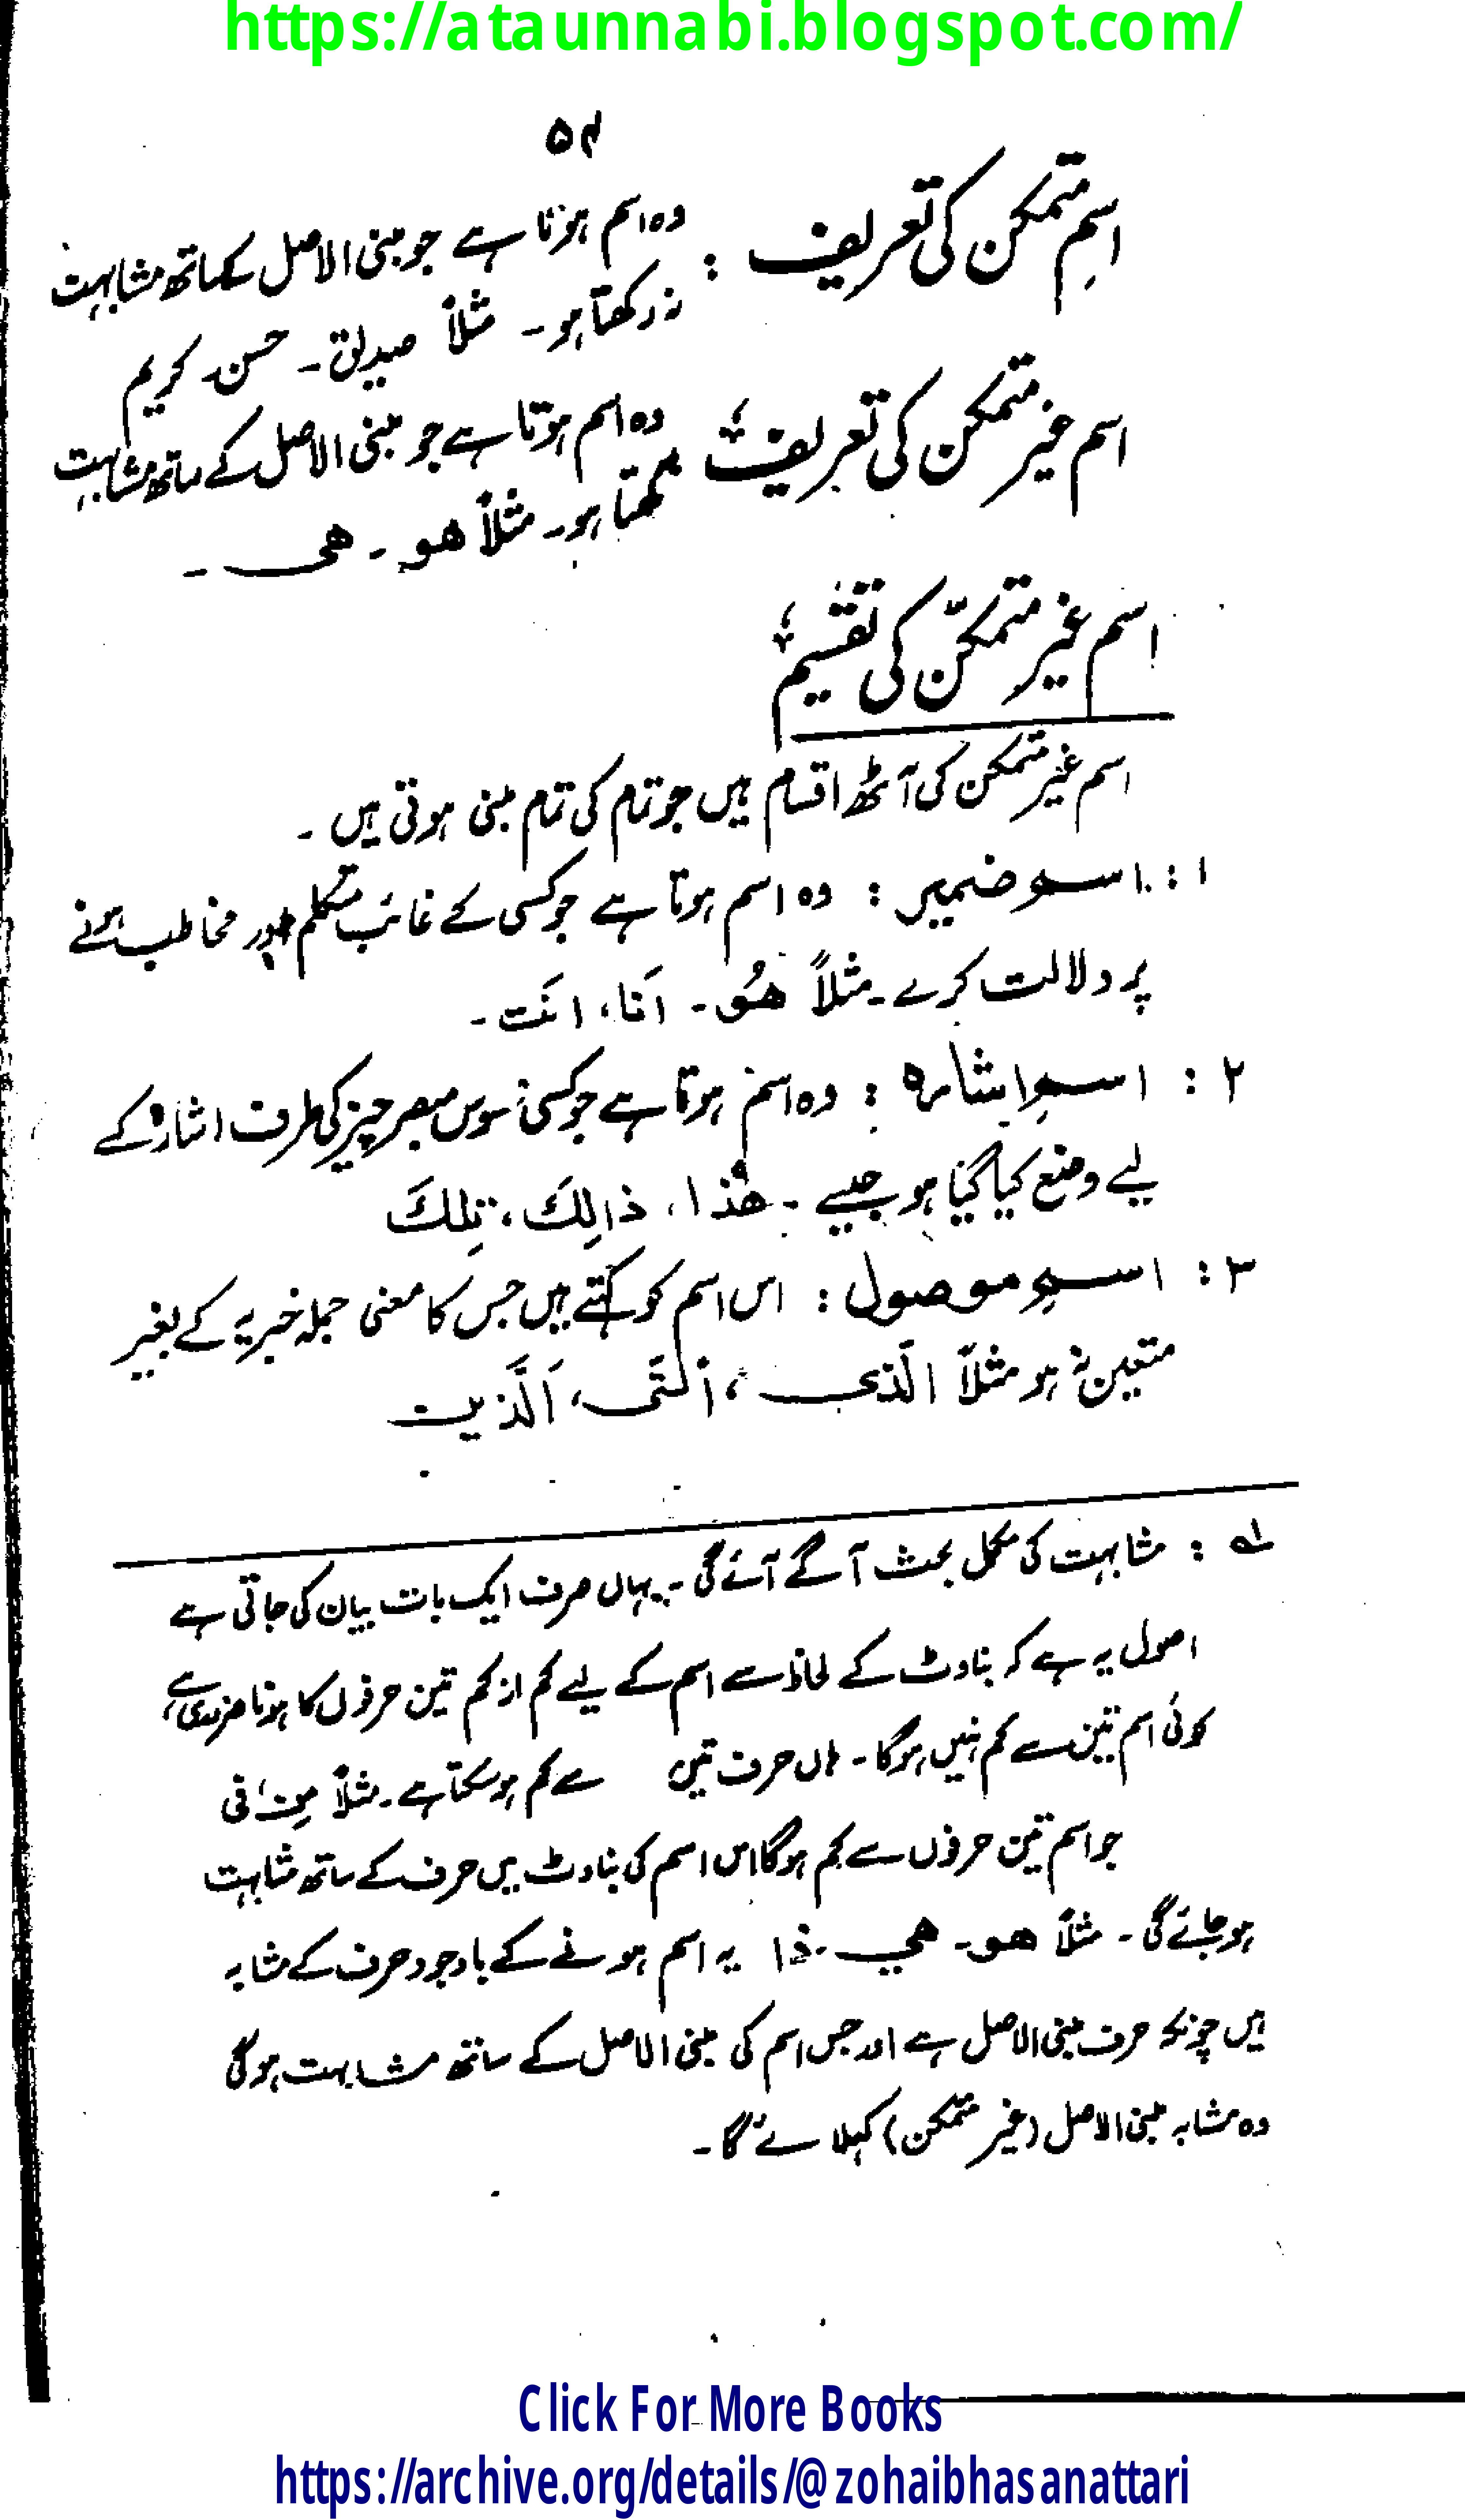 https://ataunnabi.blogspot.com/
۵۴
اسمِ متمکن کی تعریف : وہ اسم ہوتا ہے جو مبنی الاصل کے ساتھ مشابہت
نہ رکھتا ہو۔ مثلاً صدیق۔ حسن۔ کریم
اسم غیر متمکن کی تعریف : وہ اسم ہوتا ہے جو مبنی الاصل کے ساتھ مشابہت
رکھتا ہو۔ مثلاً ھو۔ ھی۔
اسم غیر متمکنّ کی تقسیم
اسم غیر متمکن کی آٹھ اقسام ہیں جو تمام کی تمام مبنی ہوتی ہیں۔
۱ : اسم ضمیر : وہ اسم ہوتا ہے جو کسی کے غائب متکلم اور مخاطب ہونے
پر دلالت کرے۔ مثلاً ھُو۔ اَنَا، انَت۔
۲ : اسمِ اشارہ : وہ اسم ہوتا ہے جو کسی مبصر چیز کی طرف اشارہ کے
لیے وضع کیا گیا ہو جیسے۔ ھٰذا، ذالِکَ، تِلکَ
۳ : اسمِ موصول : اس اسم کو کہتے ہیں جس کا معنی جملہ خبریہ کے بغیر
متعین نہ ہو مثلاً الَّذی، اَلَّتی، اَلَّذین
۱ : مشابہت کی مکمل بحث آگے آئے گی۔ یہاں صرف ایک بات بیان کی جاتی ہے
اصول یہ ہے کہ بناوٹ کے لحاظ سے اسم کے لیے کم از کم تین حرفوں کا ہونا ضروری ہے،
کوئی اسم تین سے کم نہیں ہوگا۔ ہاں حرف تین سے کم ہو سکتا ہے۔ مثلاً مِن، فی
جو اسم تین حرفوں سے کم ہوگا اس اسم کی بناوٹ میں حرف کے ساتھ مشابہت
ہو جائے گی۔ مثلاً ھو۔ ھی۔ ذا یہ اسم ہونے کے باوجود حرف کے مشابہ
ہیں چونکہ حرف مبنی الاصل ہے اور جس اسم کی مبنی الاصل کے ساتھ مشابہت ہوگی
وہ مشابہ مبنی الاصل (غیر متمکن) کہلائے گا۔
Click For More Books
https://archive.org/details/@zohaibhasanattari